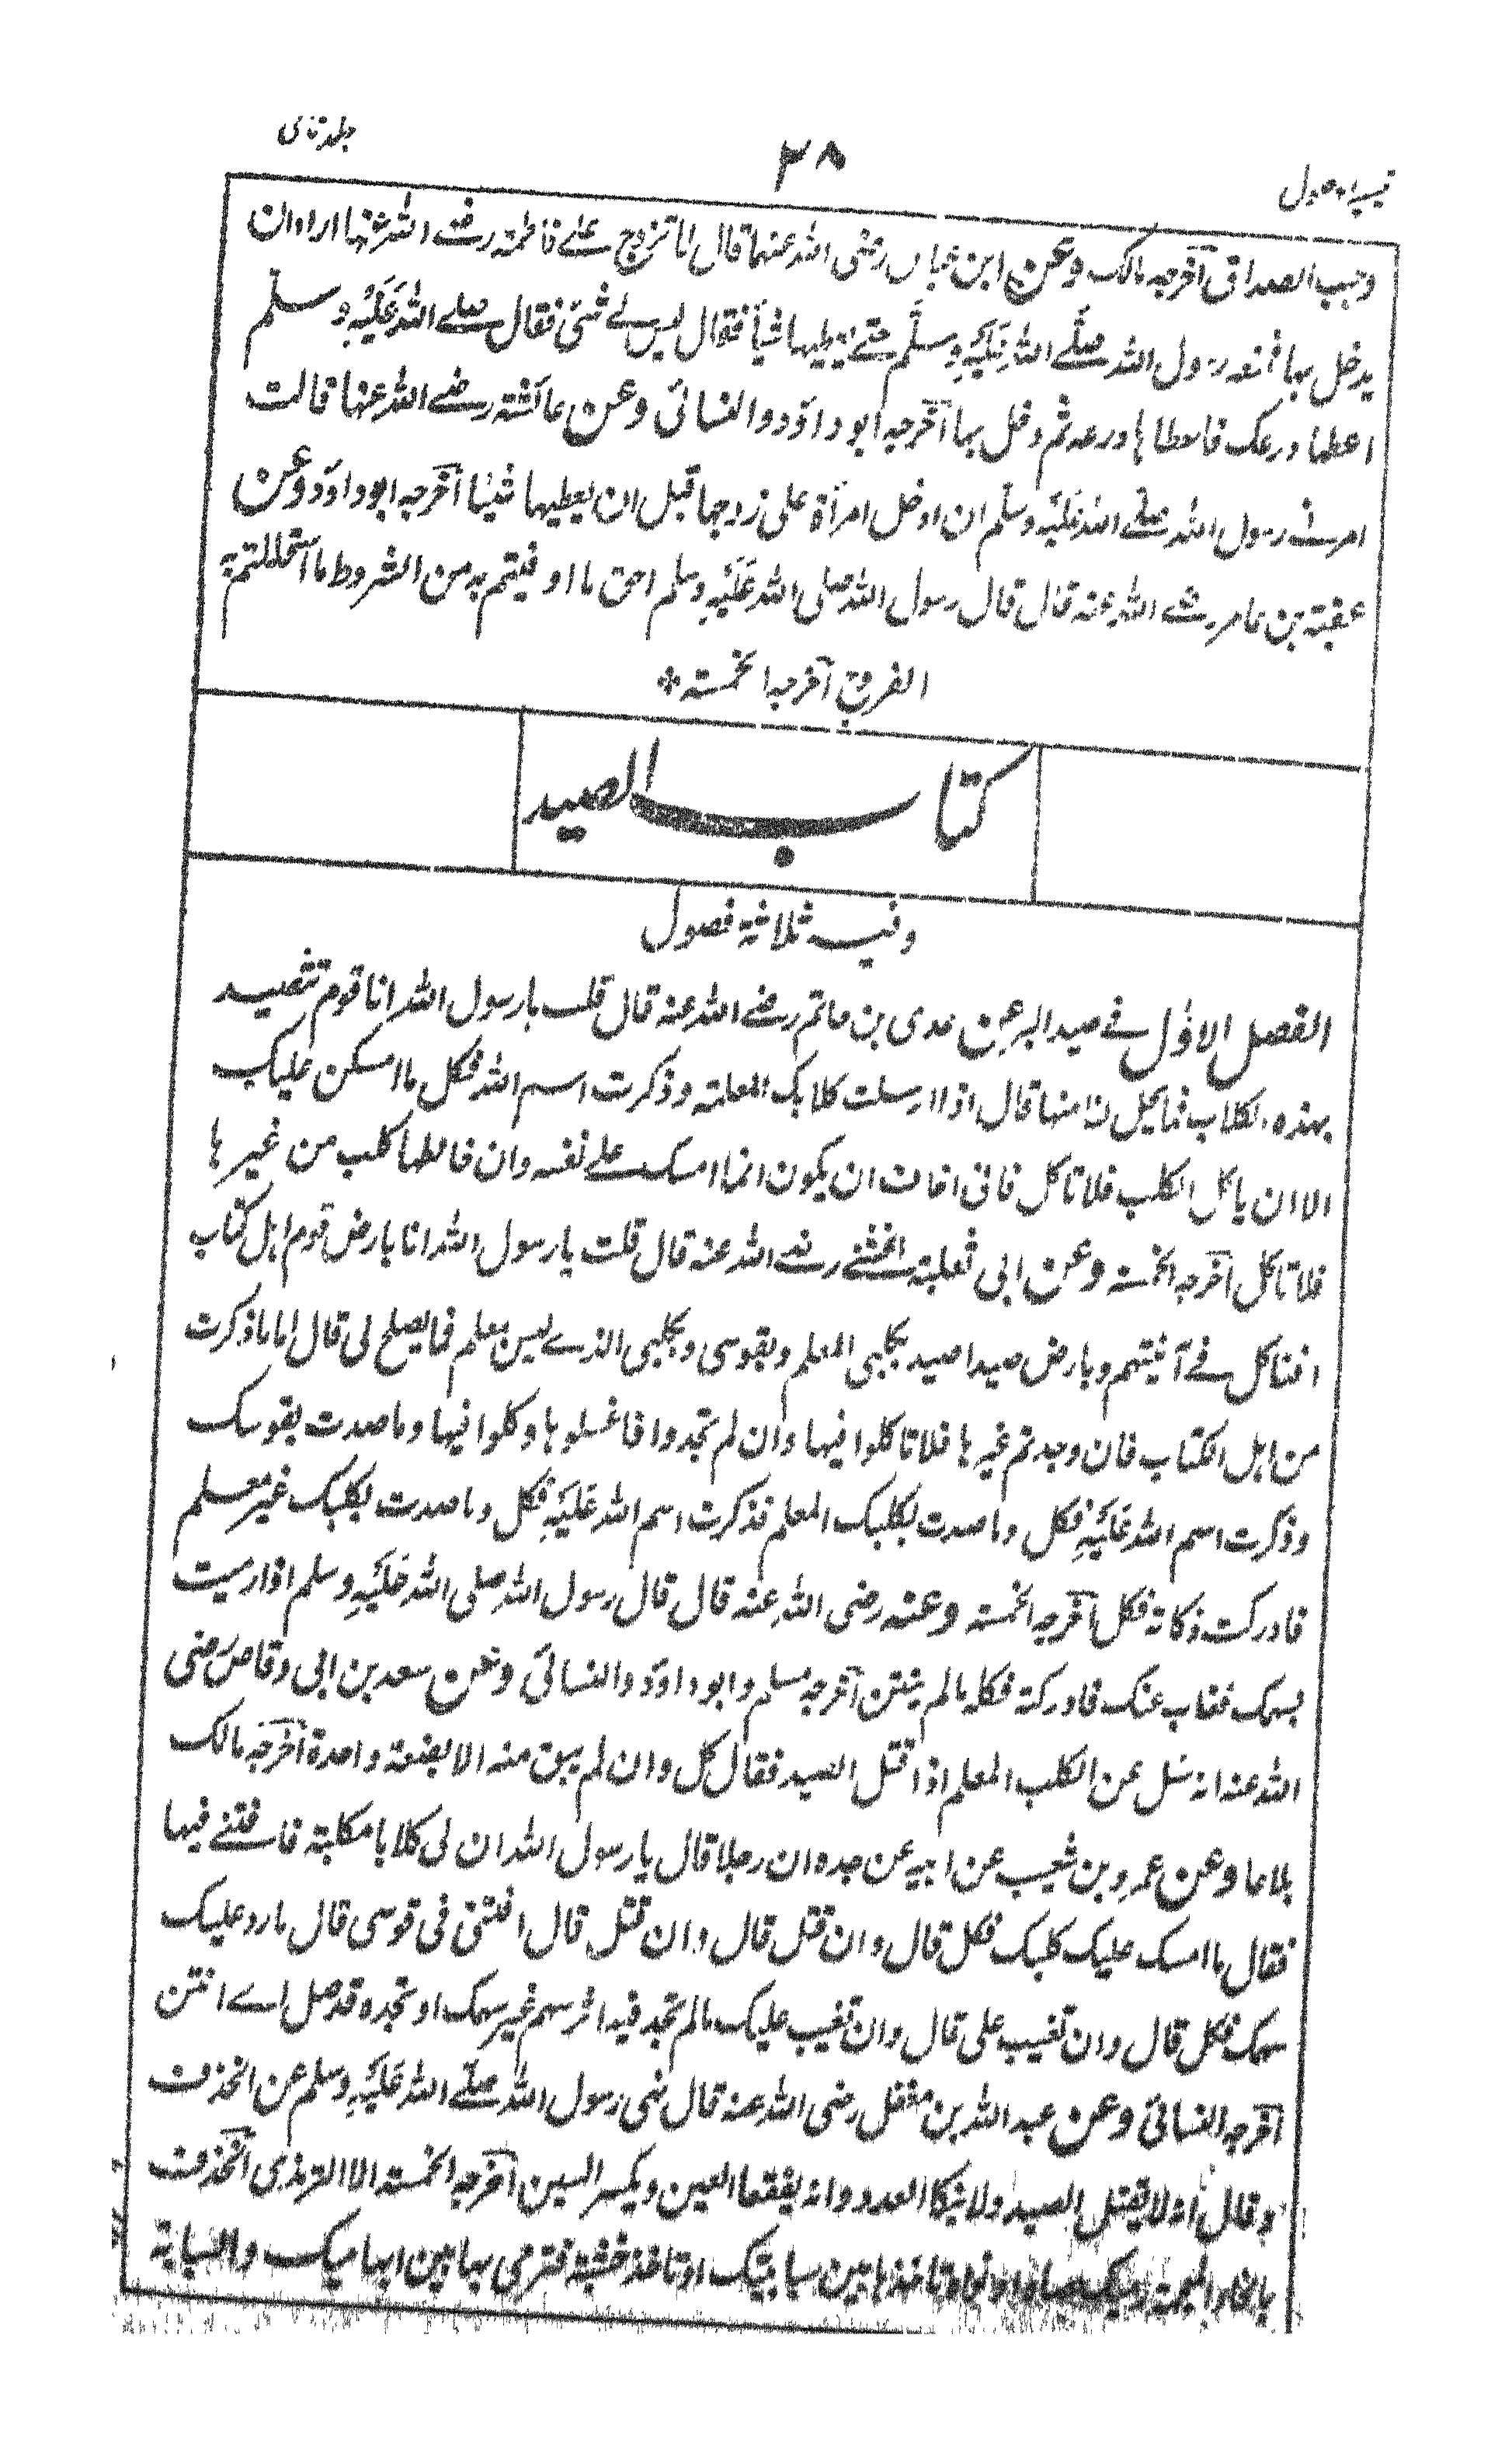 تيسير الوصول
٣٨
جلد ثانى
وجب الصداق آخرجه مالك وعن ابن عباس رضى الله عنهما قال لما تزوج على فاطمة رضى الله عنها اراد ان
يدخل بها فمنعه رسول الله صلّى الله عَلَيْهِ وسلَّم حتى يعطيها شيأ فقال ليس لى شئ فقال صلى الله عَلَيْهِ وسلم
اعطها درعك فاعطاها درعه ثم دخل بها آخرجه ابو داؤد والنسائى وعن عائشة رضى الله عنها قالت
امرنى رسول الله صلى الله عَلَيْهِ وسلم ان ادخل امرأة على زوجها قبل ان يعطيها شيئا آخرجه ابو داؤد وعن
عقبة بن عامر رضى الله عنه قال قال رسول الله صلى الله عَلَيْهِ وسلم احق ما اوفيتم به من الشروط ما استحللتم به
الفروج آخرجه الخمسة
كتاب الصيد
وفيه ثلاثة فصول
الفصل الاول فى صيد البر عن عدى بن حاتم رضى الله عنه قال قلت يا رسول الله انا قوم نتصيد
بهذه الكلاب فما يحل لنا منها قال اذا ارسلت كلابك المعلمة وذكرت اسم الله فكل ما امسكن عليك
الا ان ياكل الكلب فلا تاكل فانى اخاف ان يكون انما امسك على نفسه وان خالطها كلب من غيرها
فلا تاكل آخرجه الخمسة وعن ابى ثعلبة الخشنى رضى الله عنه قال قلت يا رسول الله انا بارض قوم اهل كتاب
افناكل فى آنيتهم وبارض صيد اصيد بكلبى المعلم وبقوسى وبكلبى الذى ليس بمعلم فما يصلح لى قال اما ما ذكرت
من اهل الكتاب فان وجدتم غيرها فلا تاكلوا فيها وان لم تجدوا فاغسلوها وكلوا فيها وما صدت بقوسك
وذكرت اسم الله عَلَيْهِ فكل وما صدت بكلبك المعلم فذكرت اسم الله عَلَيْهِ فكل وما صدت بكلبك غير معلم
فادركت ذكاته فكل آخرجه الخمسة وعنه رضى الله عنه قال قال رسول الله صلى الله عَلَيْهِ وسلم اذا رميت
بسهمك فغاب عنك فادركته فكله مالم ينتن آخرجه مسلم وابو داؤد والنسائى وعن سعد بن ابى وقاص رضى
الله عنه انه سئل عن الكلب المعلم اذا قتل الصيد فقال كل وان لم يبق منه الا بضعة واحدة آخرجه مالك
بلاغا وعن عمرو بن شعيب عن ابيه عن جده ان رجلا قال يا رسول الله ان لى كلابا مكلبة فافتنى فيها
فقال ما امسك عليك كلبك فكل قال وان قتل قال وان قتل قال افتنى فى قوسى قال ما رد عليك
سهمك فكل قال وان تغيب على قال وان تغيب عليك مالم تجد فيه اثر سهم غير سهمك او تجده قد صل اے انتن
آخرجه النسائى وعن عبد الله بن مغفل رضى الله عنه قال نهى رسول الله صلّى الله عَلَيْهِ وسلم عن الخذف
وقال انه لا يقتل الصيد ولا ينكا العدو وانه يفقعا العين ويكسر السين آخرجه الخمسة الا الترمذى الخذف
بالخاء المعجمة رميك حصاة او نواة تاخذها بين سبابتيك او تاخذ خشبة فترمى بها بين ابهاميك والسبابة